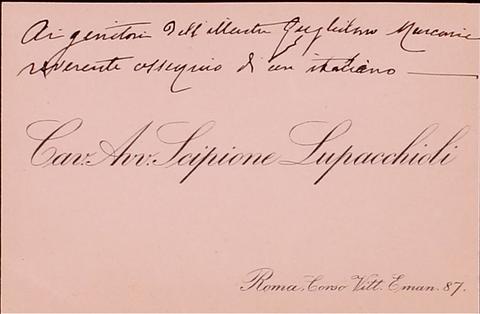 Ai genitori dell'illustre Guglielmo Marconi
reverente ossequio di un italiano —
Cav. Avv. Scipione Lupacchioli
Roma, Corso Vitt. Eman. 87.